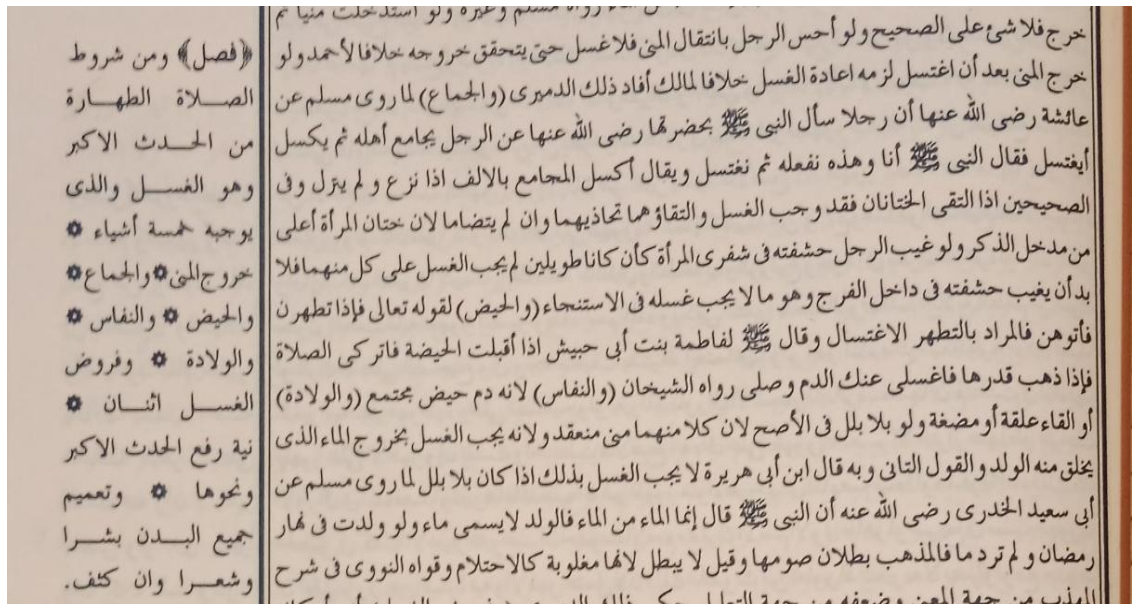 خرج فلا شئ على الصحيح ولو أحس الرجل بانتقال المنى فلا غسل حتى يتحقق خروجه خلافا لأحمد ولو
خرج المنى بعد أن اغتسل لزمه اعادة الغسل خلافا لمالك أفاد ذلك الدميرى (والجماع) لما روى مسلم عن
عائشة رضى الله عنها أن رجلا سأل النبى ﷺ بحضرتها رضى الله عنها عن الرجل يجامع أهله ثم يكسل
أيغتسل فقال النبى ﷺ أنا وهذه نفعله ثم نغتسل ويقال أكسل المجامع بالالف اذا نزع و لم ينزل وفى
الصحيحين اذا التقى الختانان فقد وجب الغسل والتقاؤهما تحاذيهما وان لم يتضاما لان ختان المرأة أعلى
من مدخل الذكر ولو غيب الرجل حشفته فى شفرى المرأة كأن كانا طويلين لم يجب الغسل على كل منهما فلا
بد أن يغيب حشفته فى داخل الفرج وهو ما لا يجب غسله فى الاستنجاء (والحيض) لقوله تعالى فإذا تطهرن
فأتوهن فالمراد بالتطهر الاغتسال وقال ﷺ لفاطمة بنت أبى حبيش اذا أقبلت الحيضة فاتركى الصلاة
فإذا ذهب قدرها فاغسلى عنك الدم وصلى رواه الشيخان (والنفاس) لانه دم حيض مجتمع (والولادة)
أو القاء علقة أو مضغة ولو بلا بلل فى الأصح لان كلا منهما منى منعقد ولانه يجب الغسل بخروج الماء الذى
يخلق منه الولد والقول الثانى وبه قال ابن أبى هريرة لا يجب الغسل بذلك اذا كان بلا بلل لما روى مسلم عن
أبى سعيد الخدرى رضى الله عنه أن النبى ﷺ قال إنما الماء من الماء فالولد لا يسمى ماء ولو ولدت فى نهار
رمضان و لم تر دما فالمذهب بطلان صومها وقيل لا يبطل لانها مغلوبة كالاحتلام وقواه النووى فى شرح
المهذب من جهة المعنى وضعفه من جهة التعليل
﴿فصل﴾ ومن شروط
الصلاة الطهارة
من الحدث الاكبر
وهو الغسل والذى
يوجبه خمسة أشياء ۞
خروج المنى ۞ والجماع ۞
والحيض ۞ والنفاس ۞
والولادة ۞ وفروض
الغسل اثنان ۞
نية رفع الحدث الاكبر
ونحوها ۞ وتعميم
جميع البدن بشرا
وشعرا وان كثف.